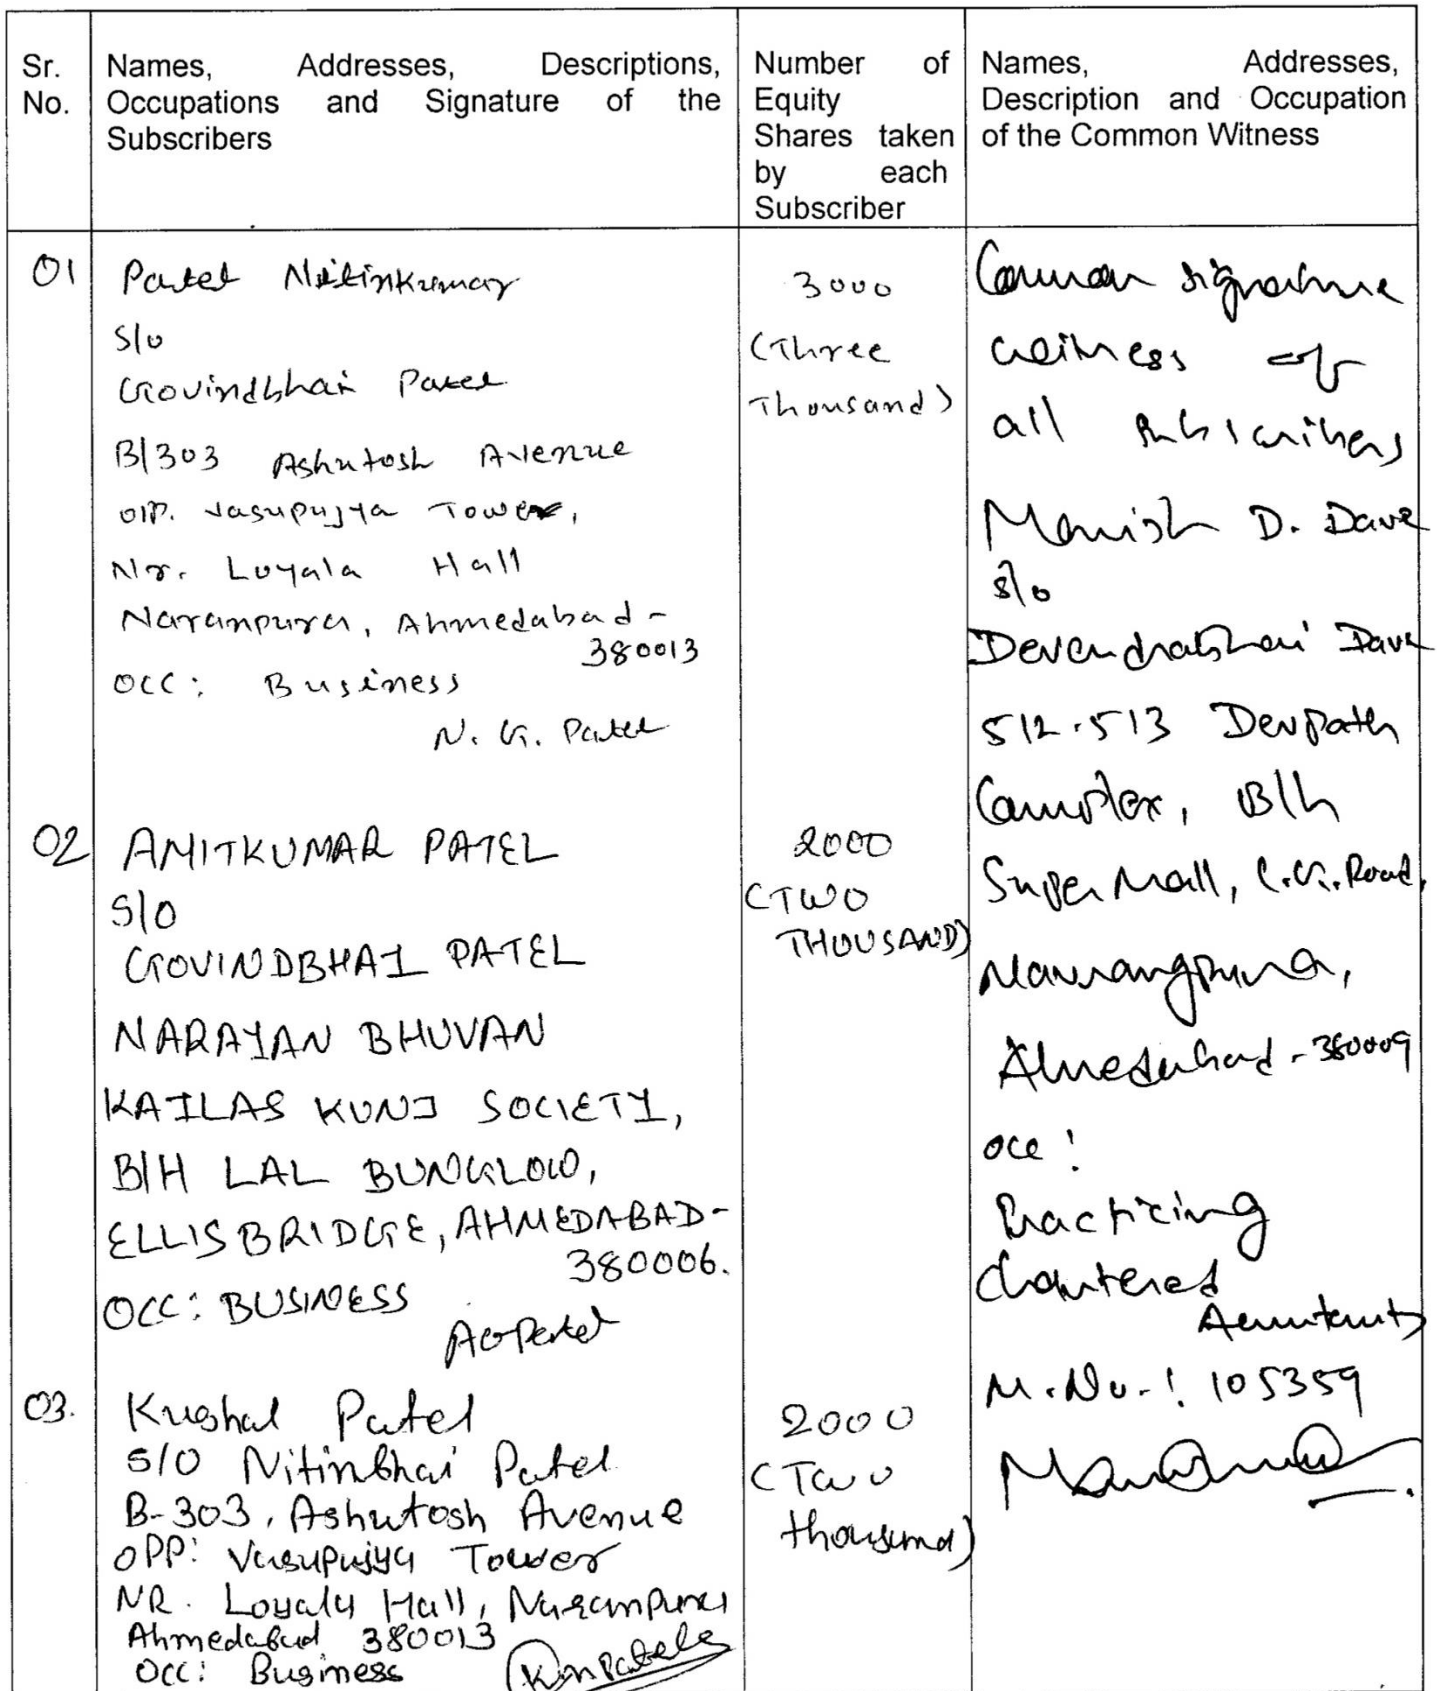 Sr. No.
Names, Addresses, Descriptions,
Occupations and Signature of the
Subscribers
Number of
Equity
Shares taken
by each
Subscriber
Names, Addresses,
Description and Occupation
of the Common Witness
01
Patel Nitinkumar
S/o
Govindbhai Patel
B/303 Ashutosh Avenue
OPP. Vasupujya Tower,
Nr. Loyala Hall
Naranpura, Ahmedabad -
380013
OCC: Business
N. G. Patel
3000
(Three
Thousand)
Common signature
witness of
all subscribers
Manish D. Dave
S/o
Devendrabhai Dave
512-513 Devpath
Complex, B/h
Super Mall, C.G. Road,
Navrangpura,
Ahmedabad - 380009
occ:
Practicing
Chartered
Accountants
M.No.: 105359
02
AMITKUMAR PATEL
S/O
GOVINDBHAI PATEL
NARAYAN BHUVAN
KAILAS KUNJ SOCIETY,
B/H LAL BUNGLOW,
ELLISBRIDGE, AHMEDABAD-
380006.
OCC: BUSINESS
AGPatel
2000
(TWO
THOUSAND)
03.
Kushal Patel
S/O Nitinbhai Patel
B-303, Ashutosh Avenue
OPP: Vasupujya Tower
NR. Loyala Hall, Naranpura
Ahmedabad 380013
OCC: Business
2000
(Two
thousand)